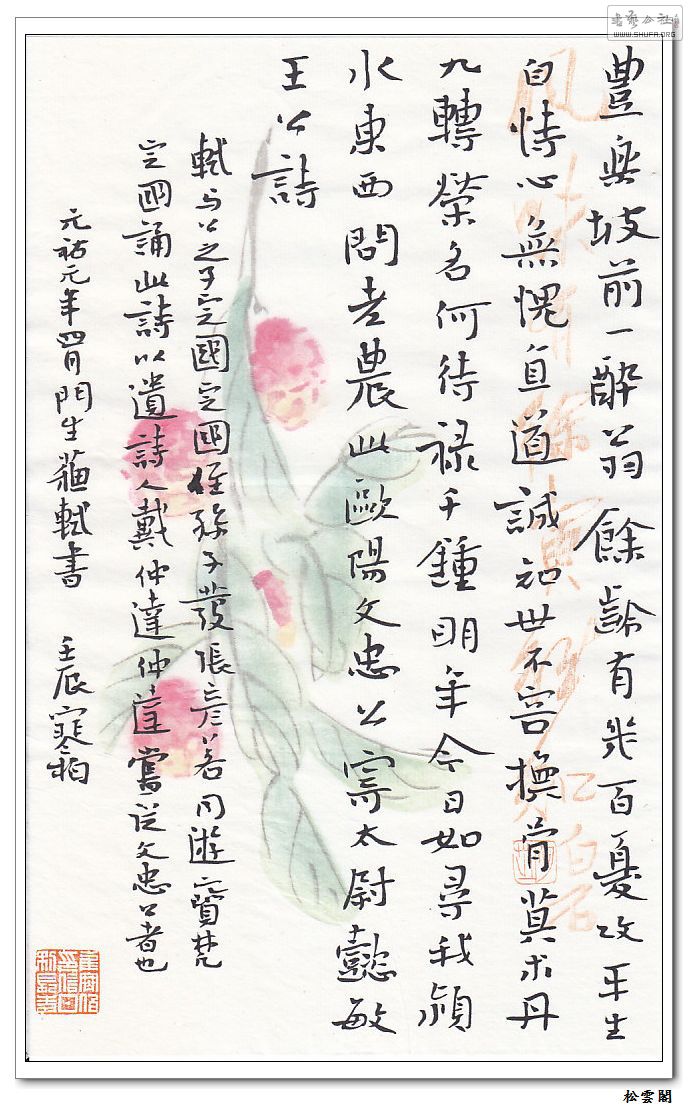 豐樂坡前一醉翁餘齡有幾百憂攻平生
自恃心無愧直道誠知世不容換骨莫求丹
九轉榮名何待祿千鍾明年今日如尋我潁
水東西問老農此歐陽文忠公寄太尉懿敏
王公詩
軾与公之子定國定國侄孫子發張彥若同遊寶梵
定國誦此詩以遺詩人戴仲達仲達嘗從文忠公者也
元祐元年四月門生蘇軾書 壬辰寒柏
書藝公社
WWW.SHUFA.ORG
松雲閣